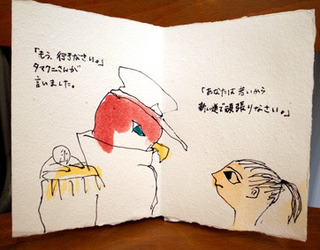 「もう、行きなさい。」
タマクニさんが
言いました。
「あなたは 若いから
新い道で頑張りなさい。」